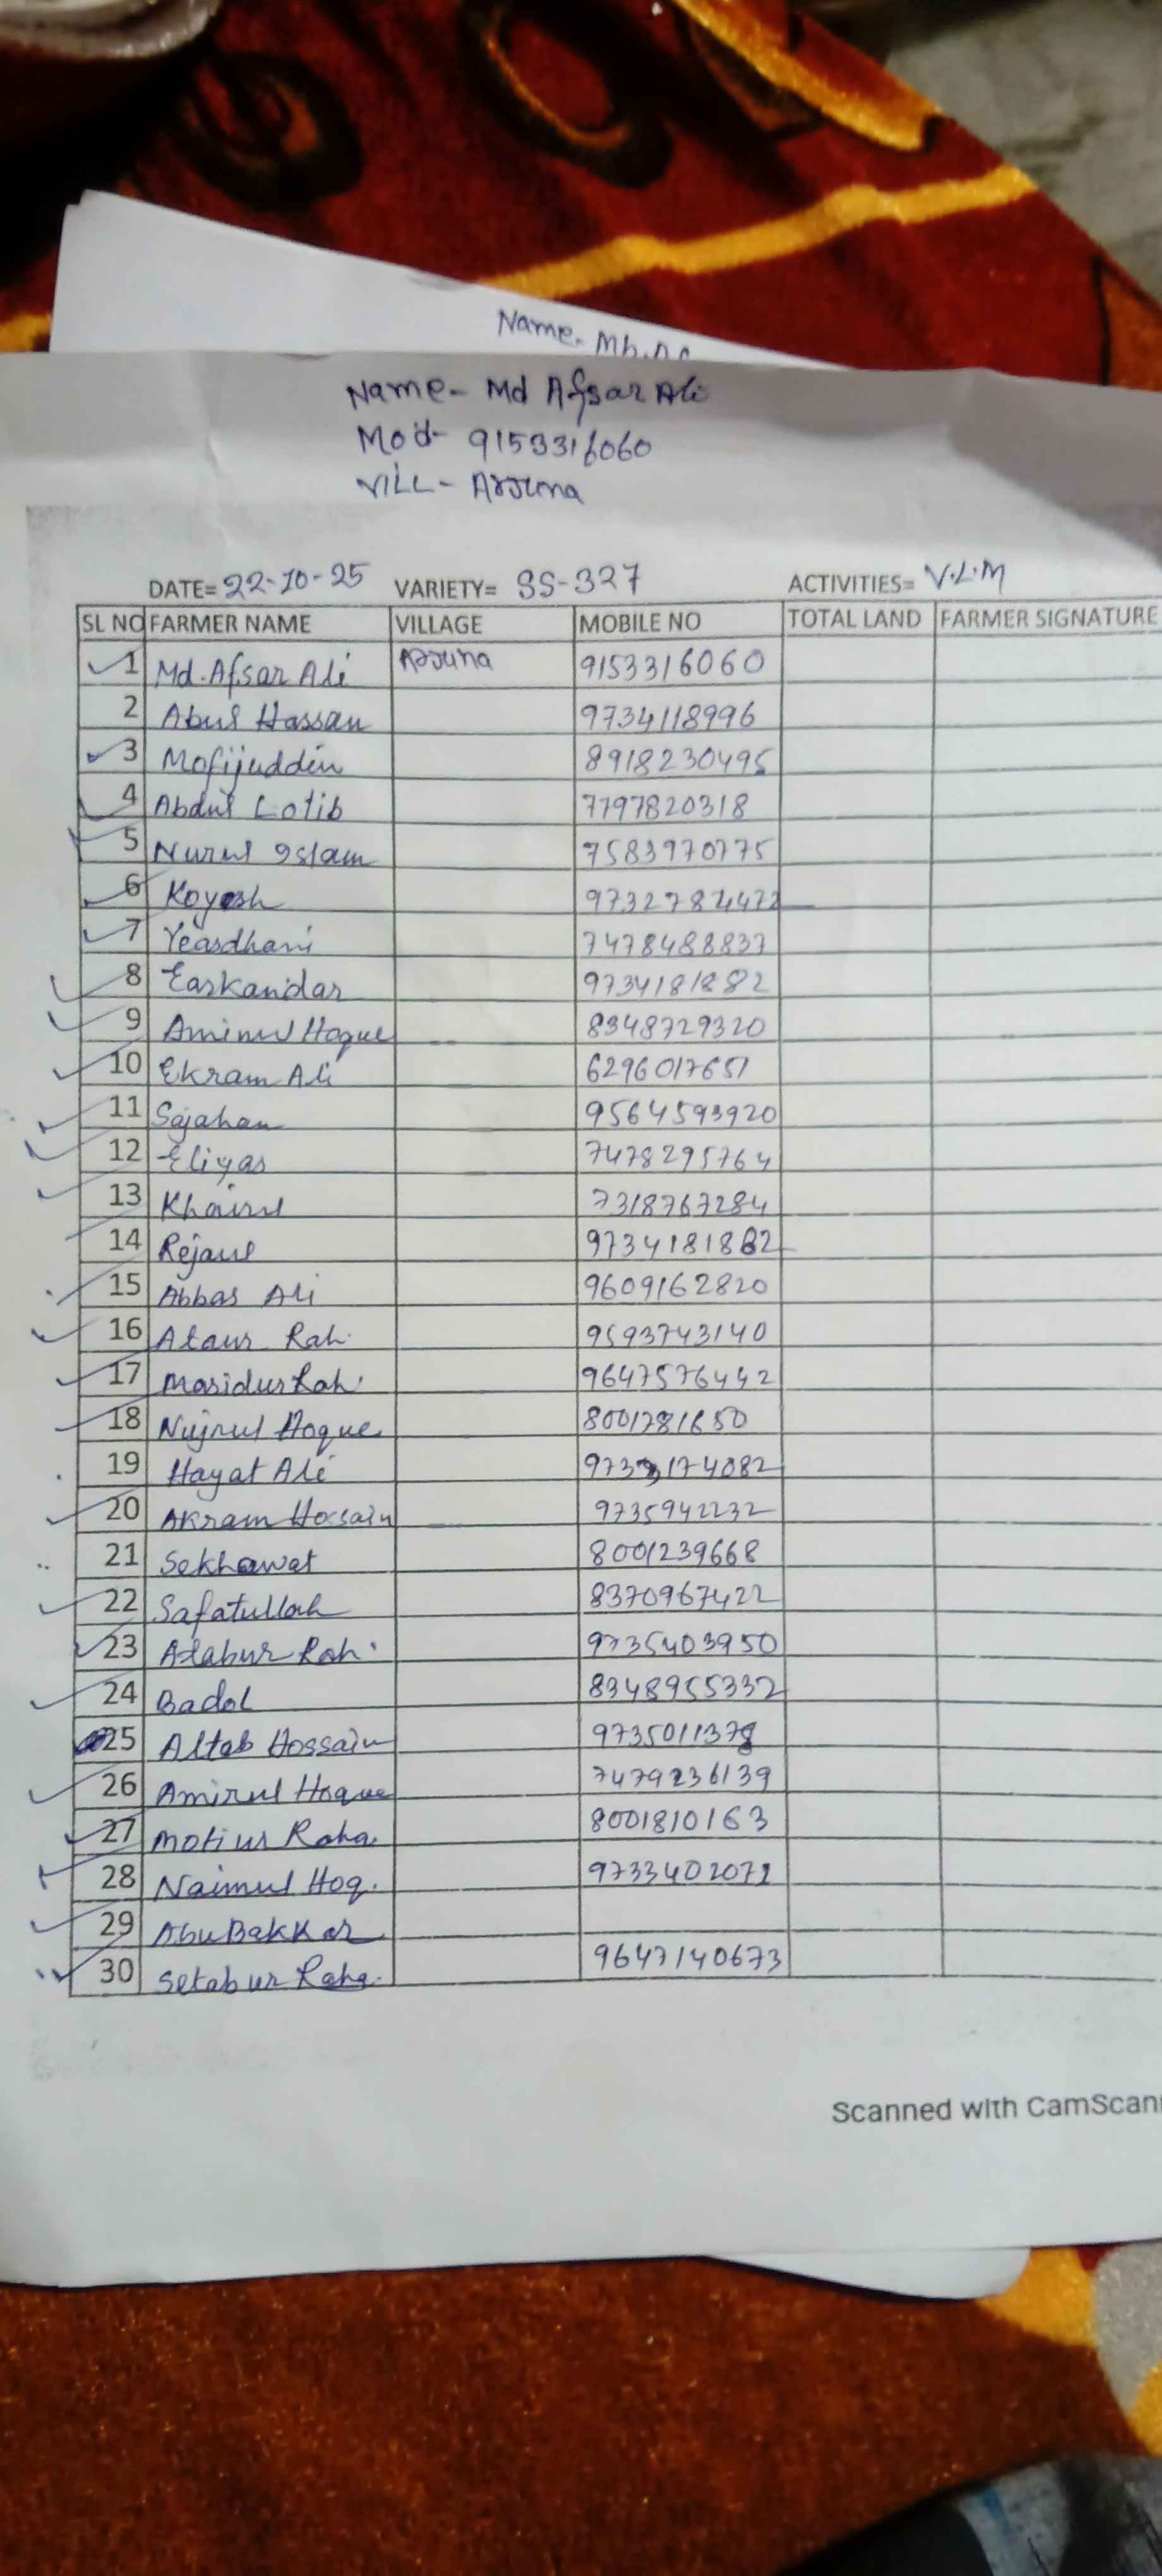 Name- Mh.
Name- Md Afsar Ali
Mod- 9153316060
VILL- Arjuna
DATE= 22-10-25 VARIETY= SS-327 ACTIVITIES= V.L.M
SL NO FARMER NAME VILLAGE MOBILE NO TOTAL LAND FARMER SIGNATURE
1 Md. Afsar Ali Arjuna 9153316060
2 Abul Hassan 9734118996
3 Mofijuddin 8918230495
4 Abdul Lotib 7797820318
5 Nurul Islam 7583970775
6 Koyesh
7 Yeasdhani 7478488837
8 Earkandar 9734181882
9 Aminul Hoque 8348729320
10 Ekram Ali 6296017651
11 Sajahan 9564593920
12 Eliyas 7478295764
13 Khairul 7318767284
14 Rejaul 9734181882
15 Abbas Ali 9609162820
16 Ataur Rah. 9593743140
17 Masidur Rah. 9647576442
18 Nujrul Hoque 8001781650
19 Hayat Ali
20 Akram Hossain 9735942232
21 Sekhawat 8001239668
22 Safatullah 8370967422
23 Atabur Rah. 9735403950
24 Badol 8348955332
25 Altab Hossain 9735011378
26 Amirul Hoque 7479236139
27 Motiur Raha. 8001810163
28 Naimul Hoq. 9733402072
29 Abu Bakkar
30 Setabur Raha. 9647140673
Scanned with CamScan